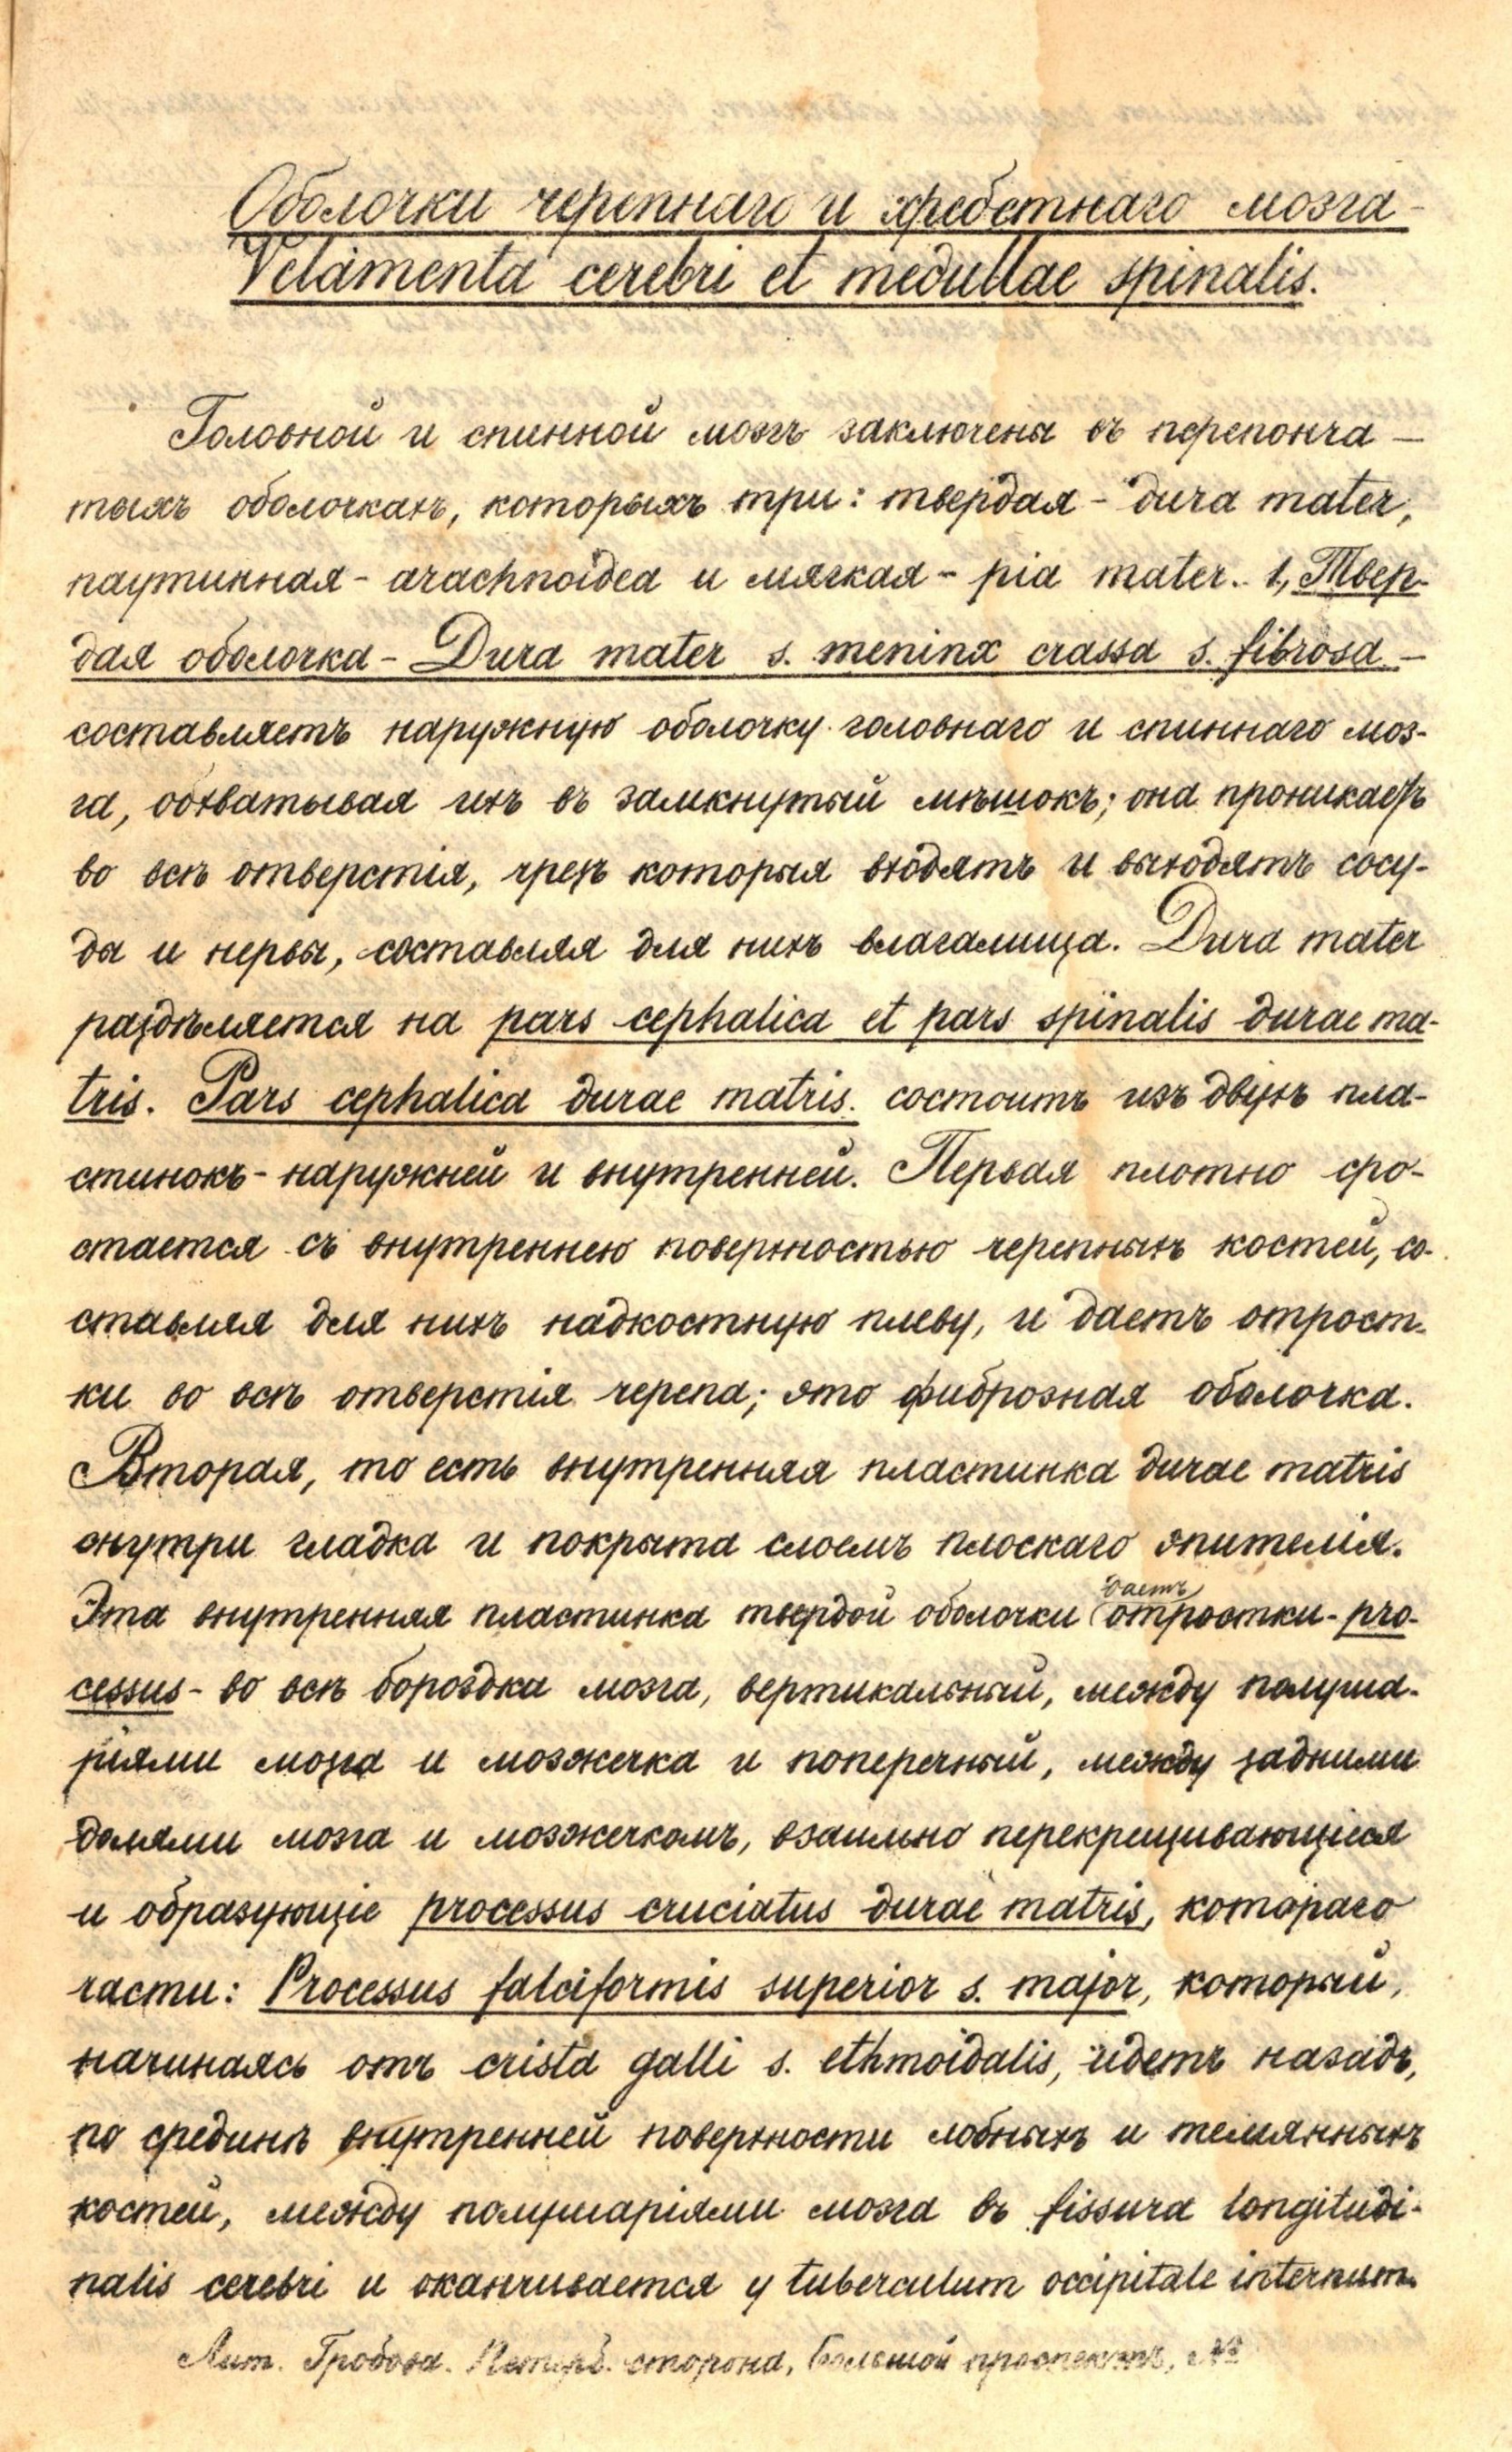 Оболочки черепнаго и хребетнаго мозга-
Velamenta cerebri et medullae spinalis.
Головной и спинной мозгъ заключены въ перепонча-
тыхъ оболочкахъ, которыхъ три: твердая - dura mater,
паутинная - arachnoidea и мягкая - pia mater. 1, Твер-
дая оболочка - Dura mater s. meninx crassa s. fibrosa -
составляетъ наружную оболочку головнаго и спиннаго моз-
га, обхватывая ихъ въ замкнутый мѣшокъ; она проникаетъ
во всѣ отверстія, чрезъ которыя входятъ и выходятъ сосу-
ды и нервы, составляя для нихъ влагалища. Dura mater
раздѣляется на pars cephalica et pars spinalis durae ma-
tris. Pars cephalica durae matris. состоитъ изъ двухъ пла-
стинокъ - наружней и внутренней. Первая плотно сро-
стается съ внутреннею поверхностью черепныхъ костей, со-
ставляя для нихъ надкостную плеву, и даетъ отрост-
ки во всѣ отверстія черепа; это фиброзная оболочка.
Вторая, то есть внутренняя пластинка durae matris
внутри гладка и покрыта слоемъ плоскаго эпителія.
Эта внутренняя пластинка твердой оболочки даетъ отростки - pro-
cessus - во всѣ бороздки мозга, вертикальный, между полуша-
ріями мозга и мозжечка и поперечный, между задними
долями мозга и мозжечкомъ, взаимно перекрещивающіеся
и образующіе processus cruciatus durae matris, котораго
части: Processus falciformis superior s. major, который,
начинаясь отъ crista galli s. ethmoidalis, идетъ назадъ,
по срединѣ внутренней поверхности лобныхъ и темянныхъ
костей, между полушаріями мозга въ fissura longitudi-
nalis cerebri и оканчивается у tuberculum occipitale internum.
Лит. Гробова. Петерб. сторона, Большой проспектъ, №